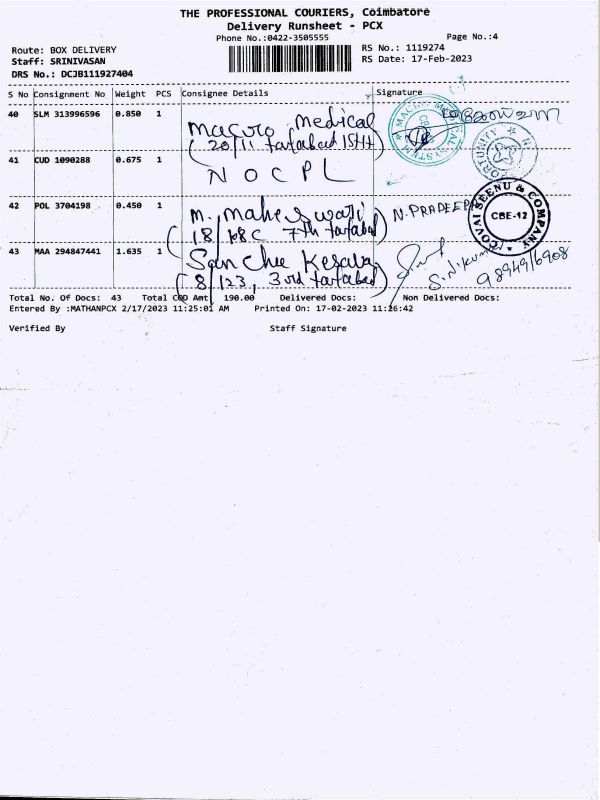 THE PROFESSIONAL COURIERS, Coimbatore
Delivery Runsheet - PCX
Phone No.:0422-3505555
Page No.:4
Route: BOX DELIVERY
RS No.: 1119274
Staff: SRINIVASAN
RS Date: 17-Feb-2023
DRS No.: DCJB111927404
S No Consignment No Weight PCS Consignee Details Signature
40 SLM 313996596 0.850 1
Macro Medical
(20/11 tatabad 15H)
41 CUD 1090288 0.675 1
NOCPL
42 POL 3704198 0.450 1
M. Maheswari N.PRADEEP
18/ 7th tatabad)
COVAI SEENU & COMPANY
CBE-12
43 MAA 294847441 1.635 1
Kesava
(8/123, 3rd tatabad)
Total No. Of Docs: 43 Total COD Amt: 190.00 Delivered Docs: Non Delivered Docs:
Entered By :MATHANPCX 2/17/2023 11:25:01 AM Printed On: 17-02-2023 11:26:42
Verified By Staff Signature